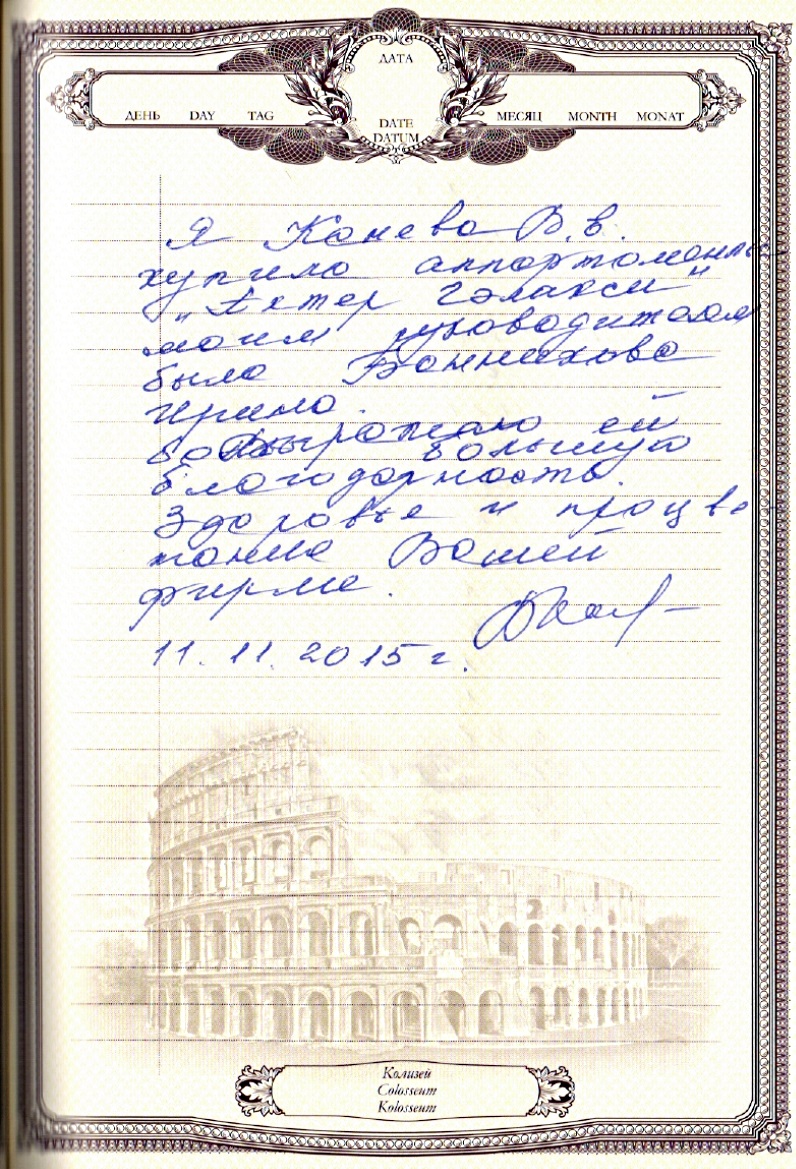 ДАТА
ДЕНЬ DAY TAG
DATE
DATUM
МЕСЯЦ MONTH MONAT
Я Канева В.В.
купила аппортоменты
"Актер Гэлакси"
моим руководителем
была Банникова
Ирина.
Выражаю ей
большую
благодарность.
Здоровье и процве-
тания Вашей
фирме.
11.11.2015 г.
Колизей
Colosseum
Kolosseum